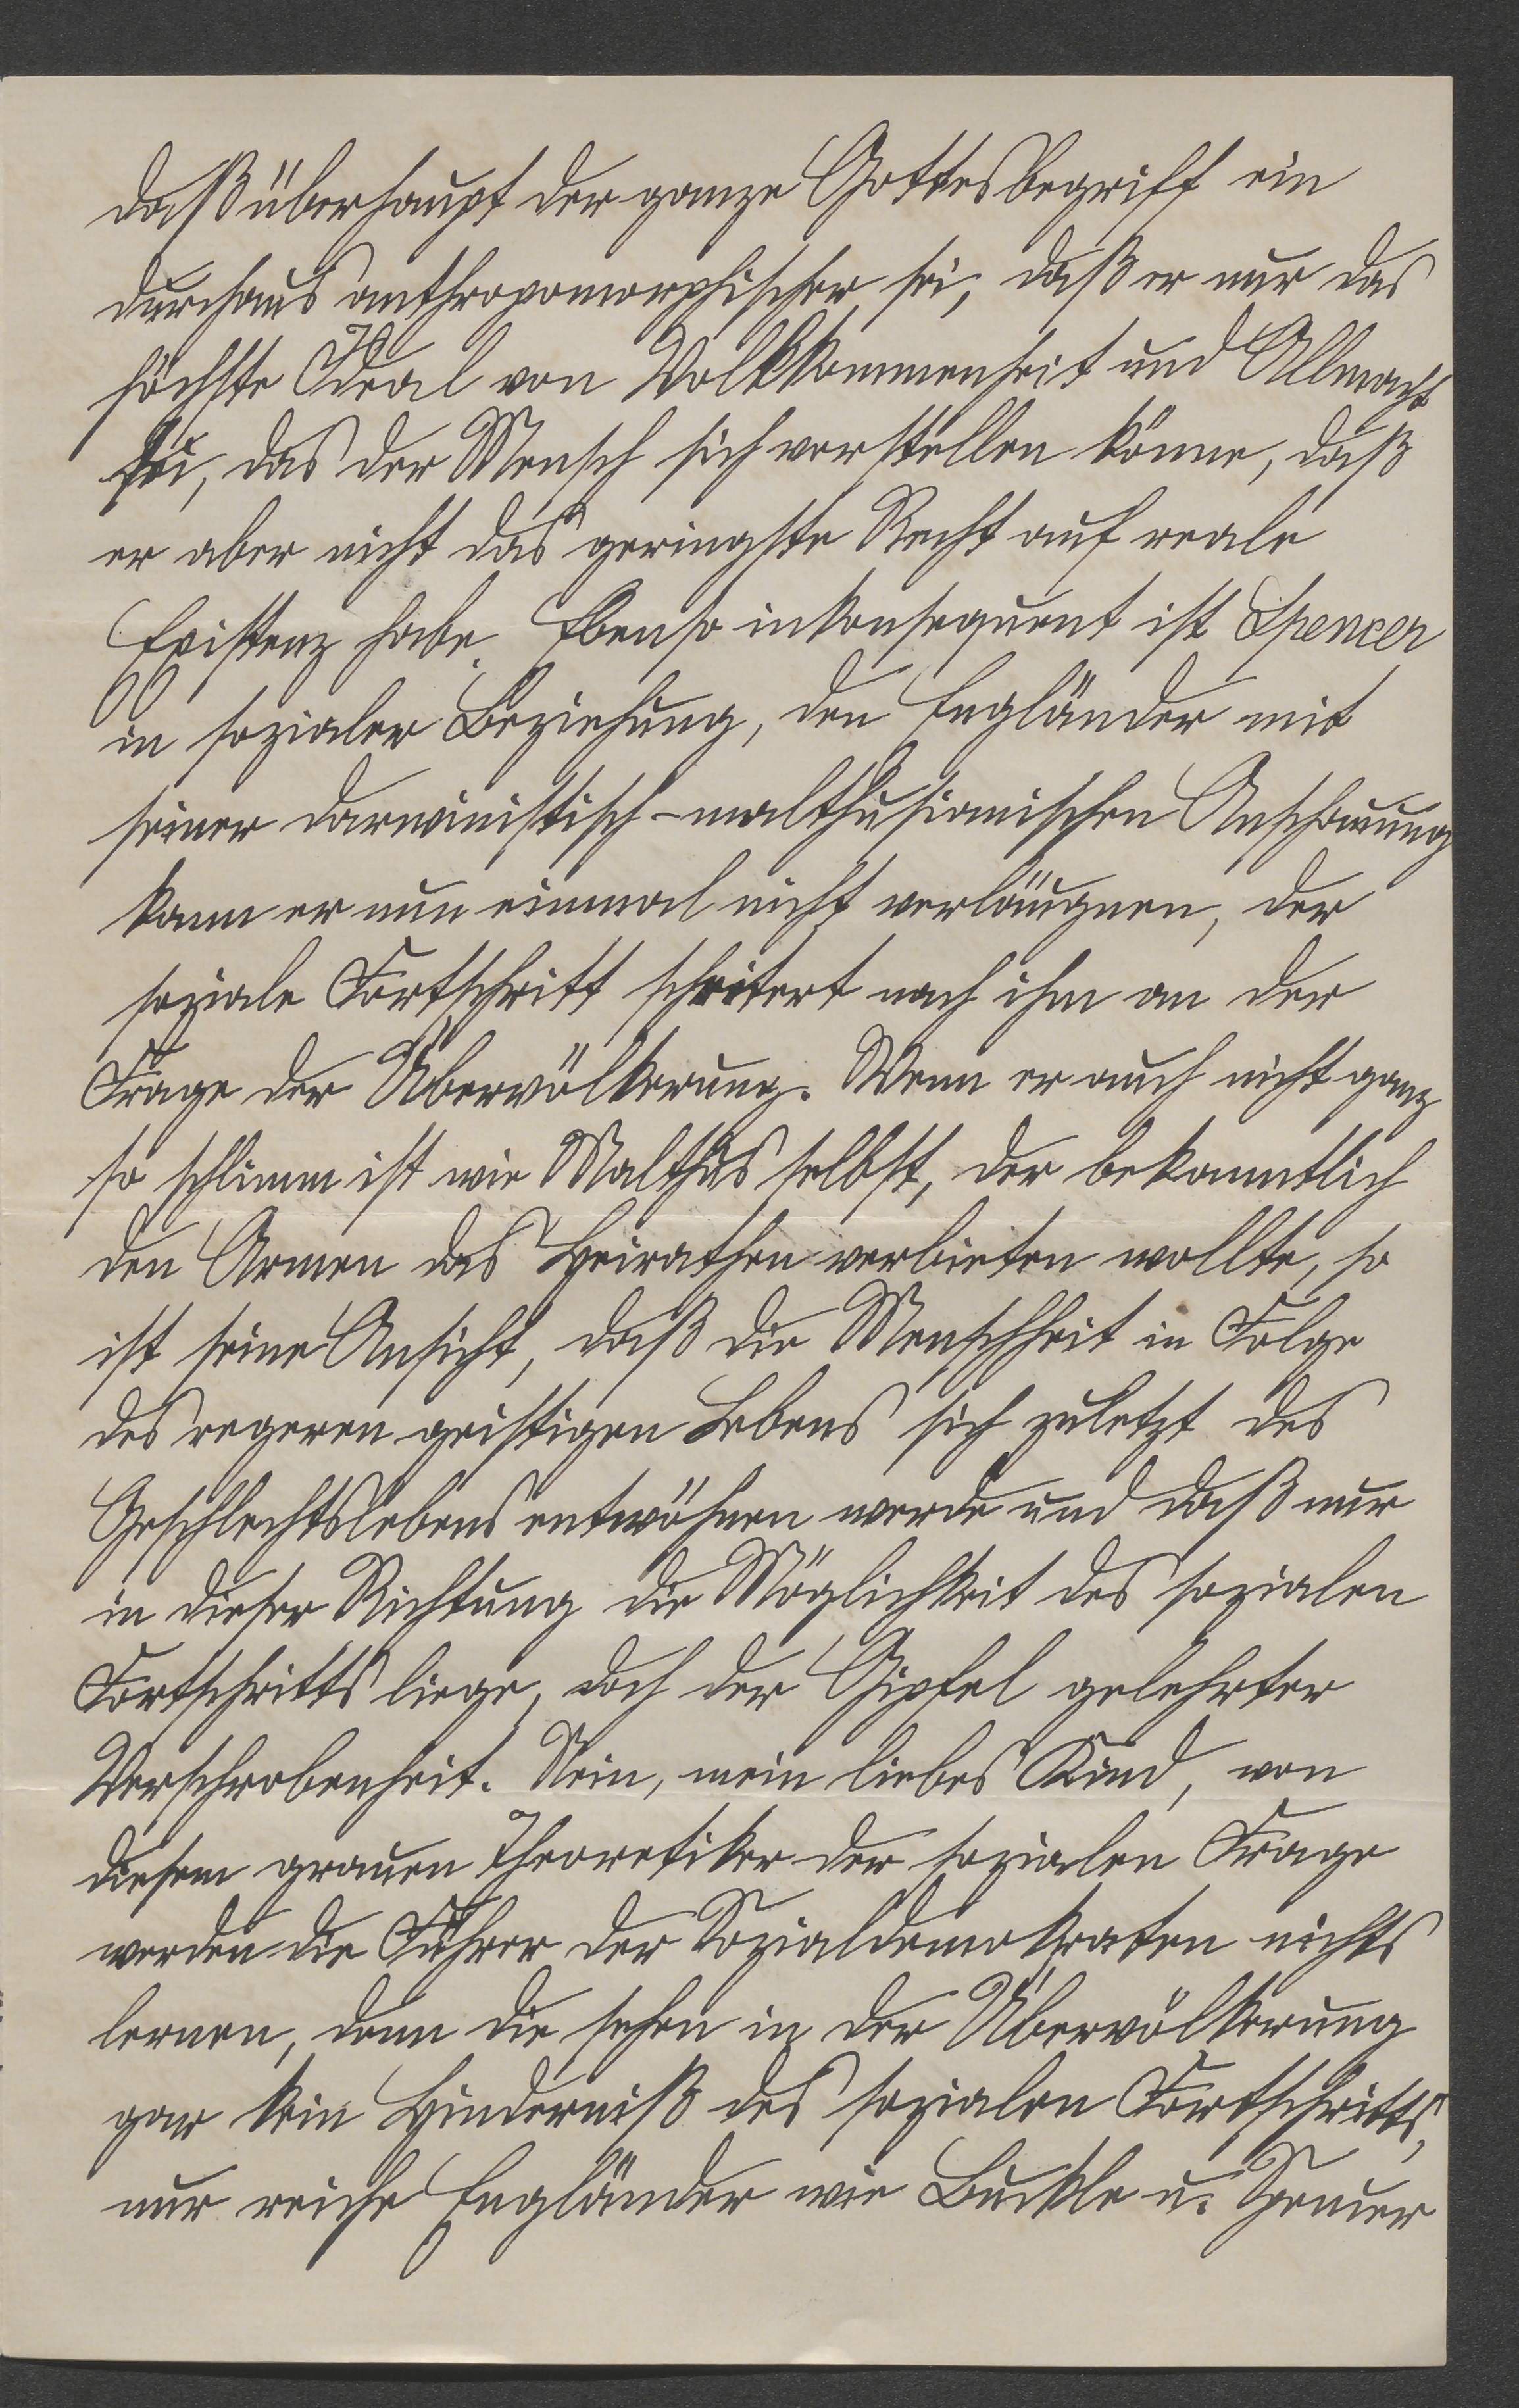 daß überhaupt der ganze Gottesbegriff ein
durchaus anthropomorphischer sei, daß er nur das
höchste Ideal von Vollkommenheit und Allmacht
sei, das der Mensch sich vorstellen könne, daß
er aber nicht das geringste Recht auf reale
Existenz habe. Ebenso inkonsequent ist Spencer
in sozialer Beziehung, den Engländer mit
seiner darwinistisch-malthusianischen Anschauung
kann er nun einmal nicht verläugnen, der
soziale Fortschritt scheitert nach ihm an der
Frage der Übervölkerung. Wenn er auch nicht ganz
so schlimm ist wie Malthus selbst, der bekanntlich
den Armen das Heirathen verbieten wollte, so
ist seine Ansicht, daß die Menschheit in Folge
des regeren geistigen Lebens sich zuletzt des
Geschlechtslebens entwöhnen werde und daß nur
in dieser Richtung die Möglichkeit des sozialen
Fortschritts liege, doch der Gipfel gelehrter
Verschrobenheit. Nein, mein liebes Kind, von
diesem grauen Theoretiker der sozialen Frage
werden die Führer der Sozialdemokraten nichts
lernen, denn die sehen in der Übervölkerung
gar kein Hinderniß des sozialen Fortschritts,
nur reiche Engländer wie Buckle u. Spencer